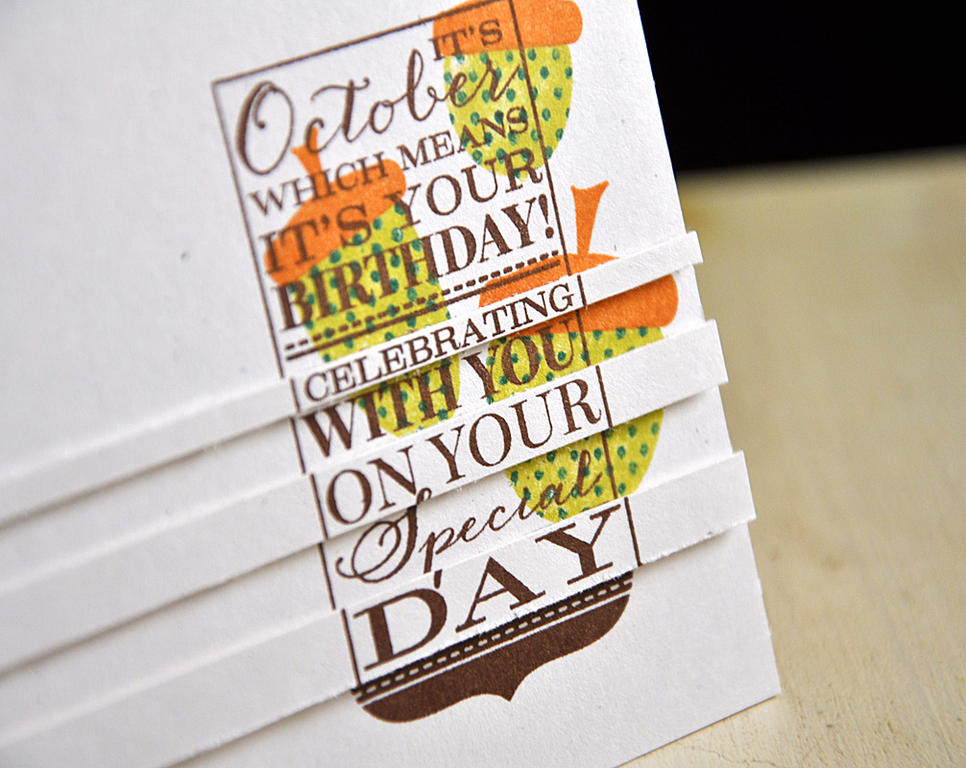 IT'S
October
WHICH MEANS
IT'S YOUR
BIRTHDAY!
CELEBRATING
WITH YOU
ON YOUR
Special
DAY